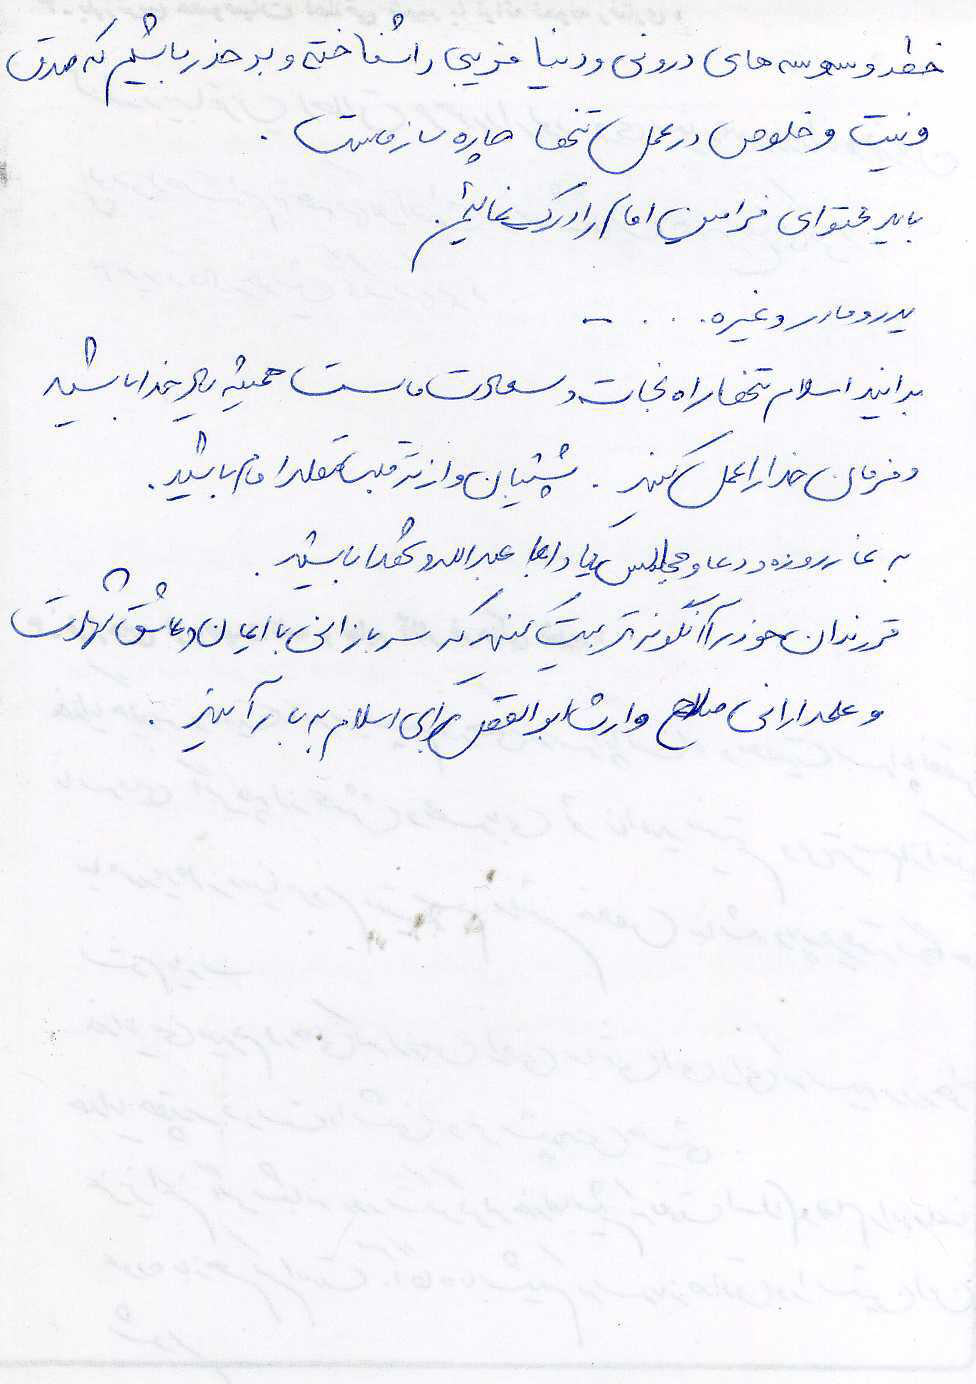 خطر وسوسه های درونی و دنیا فریبی را شناخته و بر حذر باشیم که صدق
و نیت و خلوص در عمل تنها چاره ساز ماست .
باید محتوای فرامین امام را درک نمائیم.
پدر و مادر و غیره . . . ـ
بدانید اسلام تنها راه نجات و سعادت ماست همیشه بیاد خدا باشید
و فرمان خدا را عمل کنید . پشتیبان و از ته قلب مقلد امام باشید .
به نماز و روزه و دعا و مجالس یاد ابا عبدالله و شهدا باشید .
فرزندان خود را آنگونه تربیت کنید که سربازانی با ایمان و عاشق شهادت
و علمدارانی صالح وارث ابوالفضل برای اسلام به بار آیند .